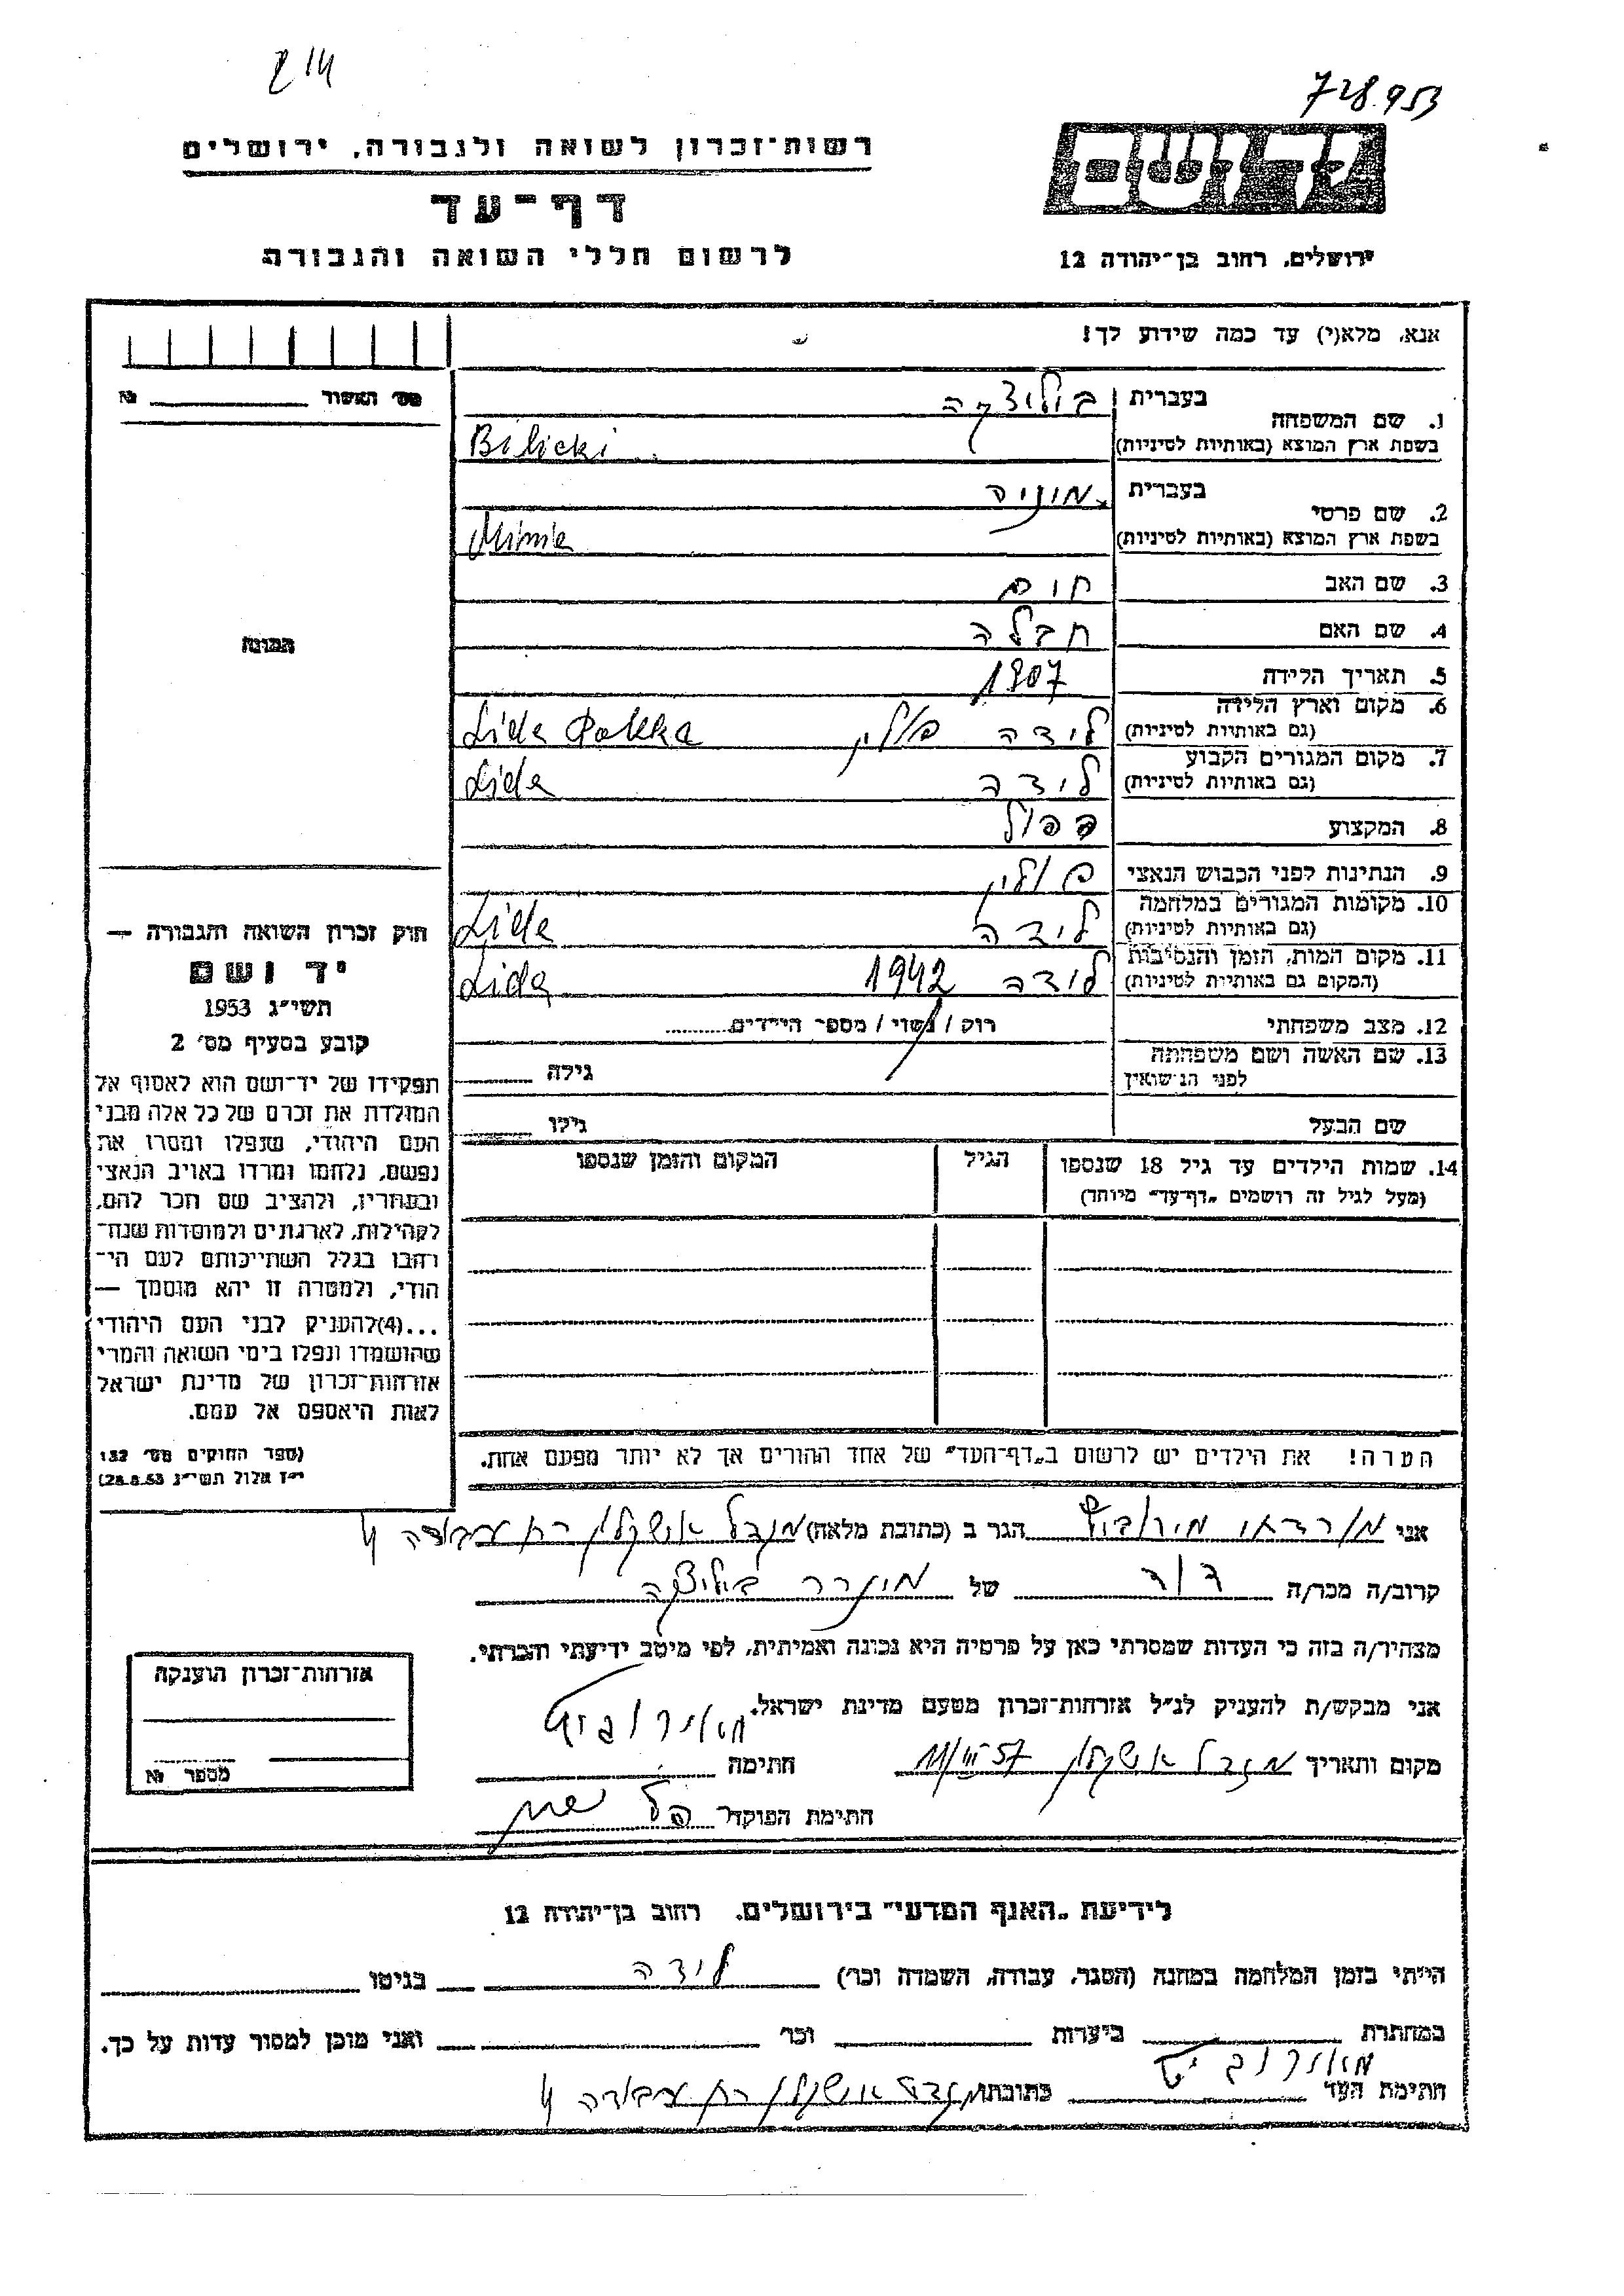 728.953
רשות־זכרון לשואה ולגבורה, ירושלים
דף־עד
לרשום חללי השואה והגבורה
ירושלים, רחוב בן־יהודה 12
אנא, מלא(י) עד כמה שידוע לך!
מס׳ האשור №
1. שם המשפחה
בעברית
בשפת ארץ המוצא (באותיות לטיניות) Bilicki
2. שם פרטי
בעברית
בשפת ארץ המוצא (באותיות לטיניות)
3. שם האב חיים
4. שם האם
5. תאריך הלידה 1907
6. מקום וארץ הלידה לידה פולין Lida
(גם באותיות לטיניות)
7. מקום המגורים הקבוע לידה Lida
(גם באותיות לטיניות)
8. המקצוע
9. הנתינות לפני הכבוש הנאצי פולין
10. מקומות המגורים במלחמה לידה Lida
(גם באותיות לטיניות)
11. מקום המות, הזמן והנסיבות לידה 1942 Lida
(המקום גם באותיות לטיניות)
12. מצב משפחתי רוק / נשוי / מספר הילדים
13. שם האשה ושם משפחתה
לפני הנישואין גילה
שם הבעל גילו
14. שמות הילדים עד גיל 18 שנספו הגיל המקום והזמן שנספו
(מעל לגיל זה רושמים „דף־עד״ מיוחד)
הערה! את הילדים יש לרשום ב„דף־העד״ של אחד ההורים אך לא יותר מפעם אחת.
התמונה
חוק זכרון השואה והגבורה —
יד ושם
תשי״ג 1953
קובע בסעיף מס׳ 2
תפקידו של יד־ושם הוא לאסוף אל
המולדת את זכרם של כל אלה מבני
העם היהודי, שנפלו ומסרו את
נפשם, נלחמו ומרדו באויב הנאצי
ובעוזריו, ולהציב שם וזכר להם,
לקהילות, לארגונים ולמוסדות שנח־
רבו בגלל השתייכותם לעם הי־
הודי, ולמטרה זו יהא מוסמך —
...(4)להעניק לבני העם היהודי
שהושמדו ונפלו בימי השואה והמרי
אזרחות־זכרון של מדינת ישראל
לאות היאספם אל עמם.
(ספר החוקים מס׳ 132
י״ז אלול תשי״ג 28.8.53)
אני הגר ב (כתובת מלאה) מגדל אשקלון
קרוב/ה מכר/ה דוד של
מצהיר/ה בזה כי העדות שמסרתי כאן על פרטיה היא נכונה ואמיתית, לפי מיטב ידיעתי והכרתי.
אני מבקש/ת להעניק לנ״ל אזרחות־זכרון מטעם מדינת ישראל.
מקום ותאריך מגדל אשקלון 11/III 57 חתימה
חתימת הפוקד
אזרחות־זכרון הוענקה
מספר №
לידיעת „האגף המדעי״ בירושלים, רחוב בן־יהודה 12
הייתי בזמן המלחמה במחנה (הסגר, עבודה, השמדה וכו׳) לידה בגיטו
במחתרת ביערות וכו׳ ואני מוכן למסור עדות על כך.
חתימת העד כתובתו מגדל אשקלון